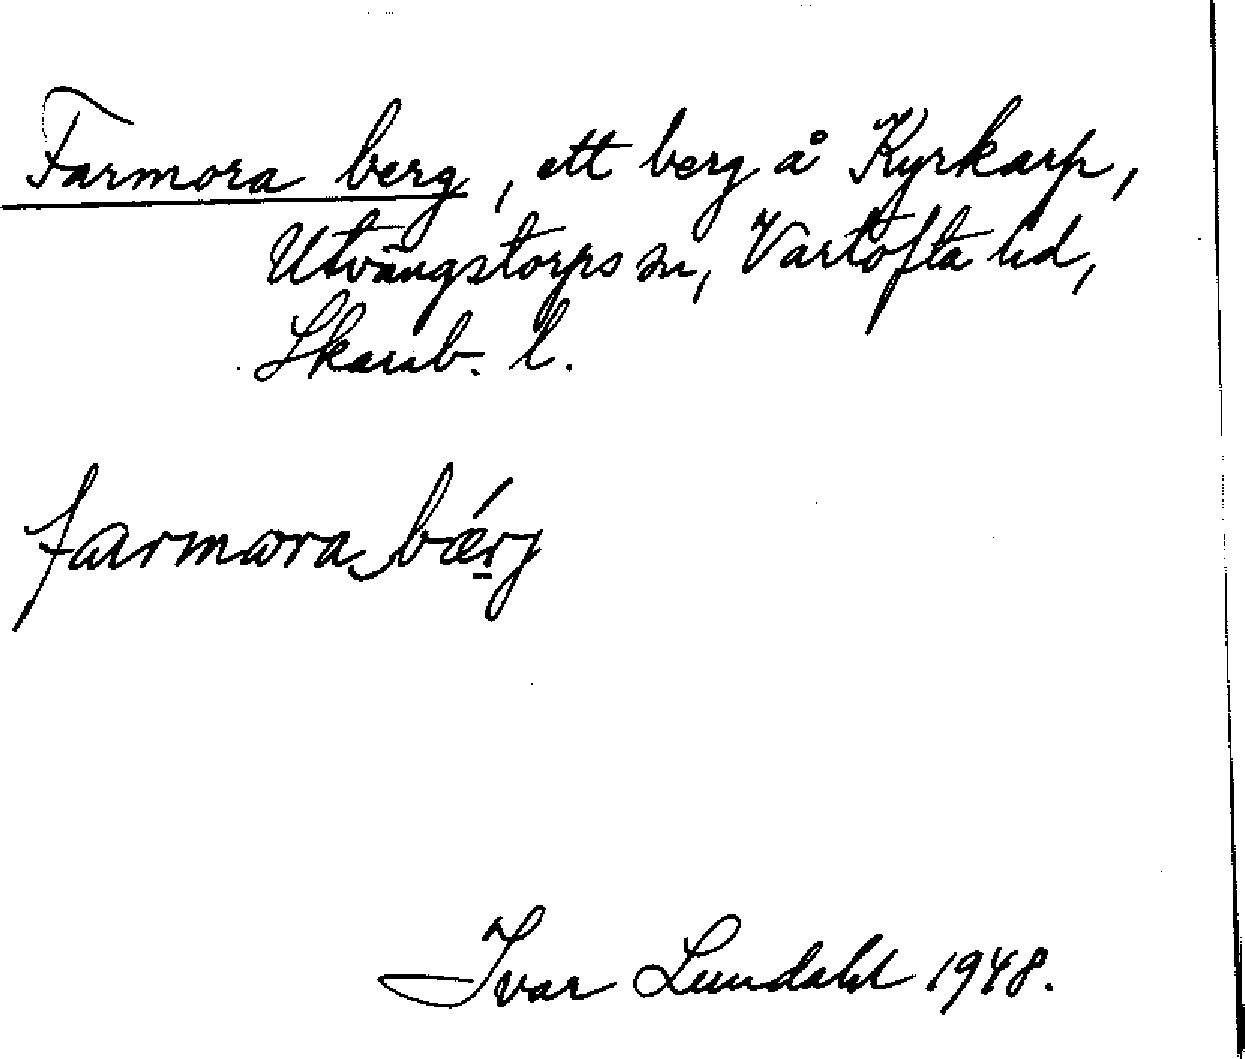 Farmora berg, ett berg å Kyrkarp,
Utvängstorps sn, Vartofta hd,
Skarab. l.
farmora bǽrj
Ivar Lundahl 1948.